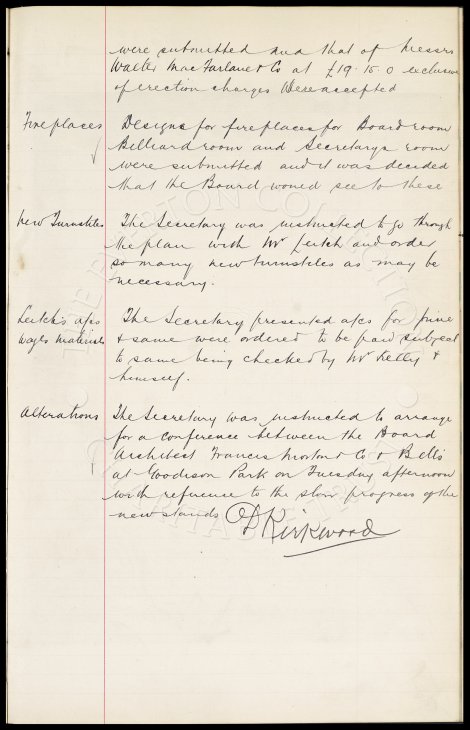 were submitted and that of Messrs
Walter MacFarlane & Co at £19.15.0 exclusive
of erection charges Were accepted
Fireplaces Designs for fireplaces for Board room
Billiard room and Secretarys room
were submitted and it was decided
that the Board would see to these
New Turnstiles The Secretary was instructed to go through
the plan with Mr Leitch and order
so many new turnstiles as may be
necessary.
Leitch's a/cs The Secretary presented a/cs for June
Wages Materials & same were ordered to be paid subject
to same being checked by Mr Kelly &
himself.
Alterations The Secretary was instructed to arrange
for a conference between the Board
Architect Francis Morton & Co & Bells
at Goodison Park on Tuesday afternoon
with reference to the slow progress of the
new stands
D Kirkwood
THE EVERTON COLLECTION
CHARITABLE TRUST